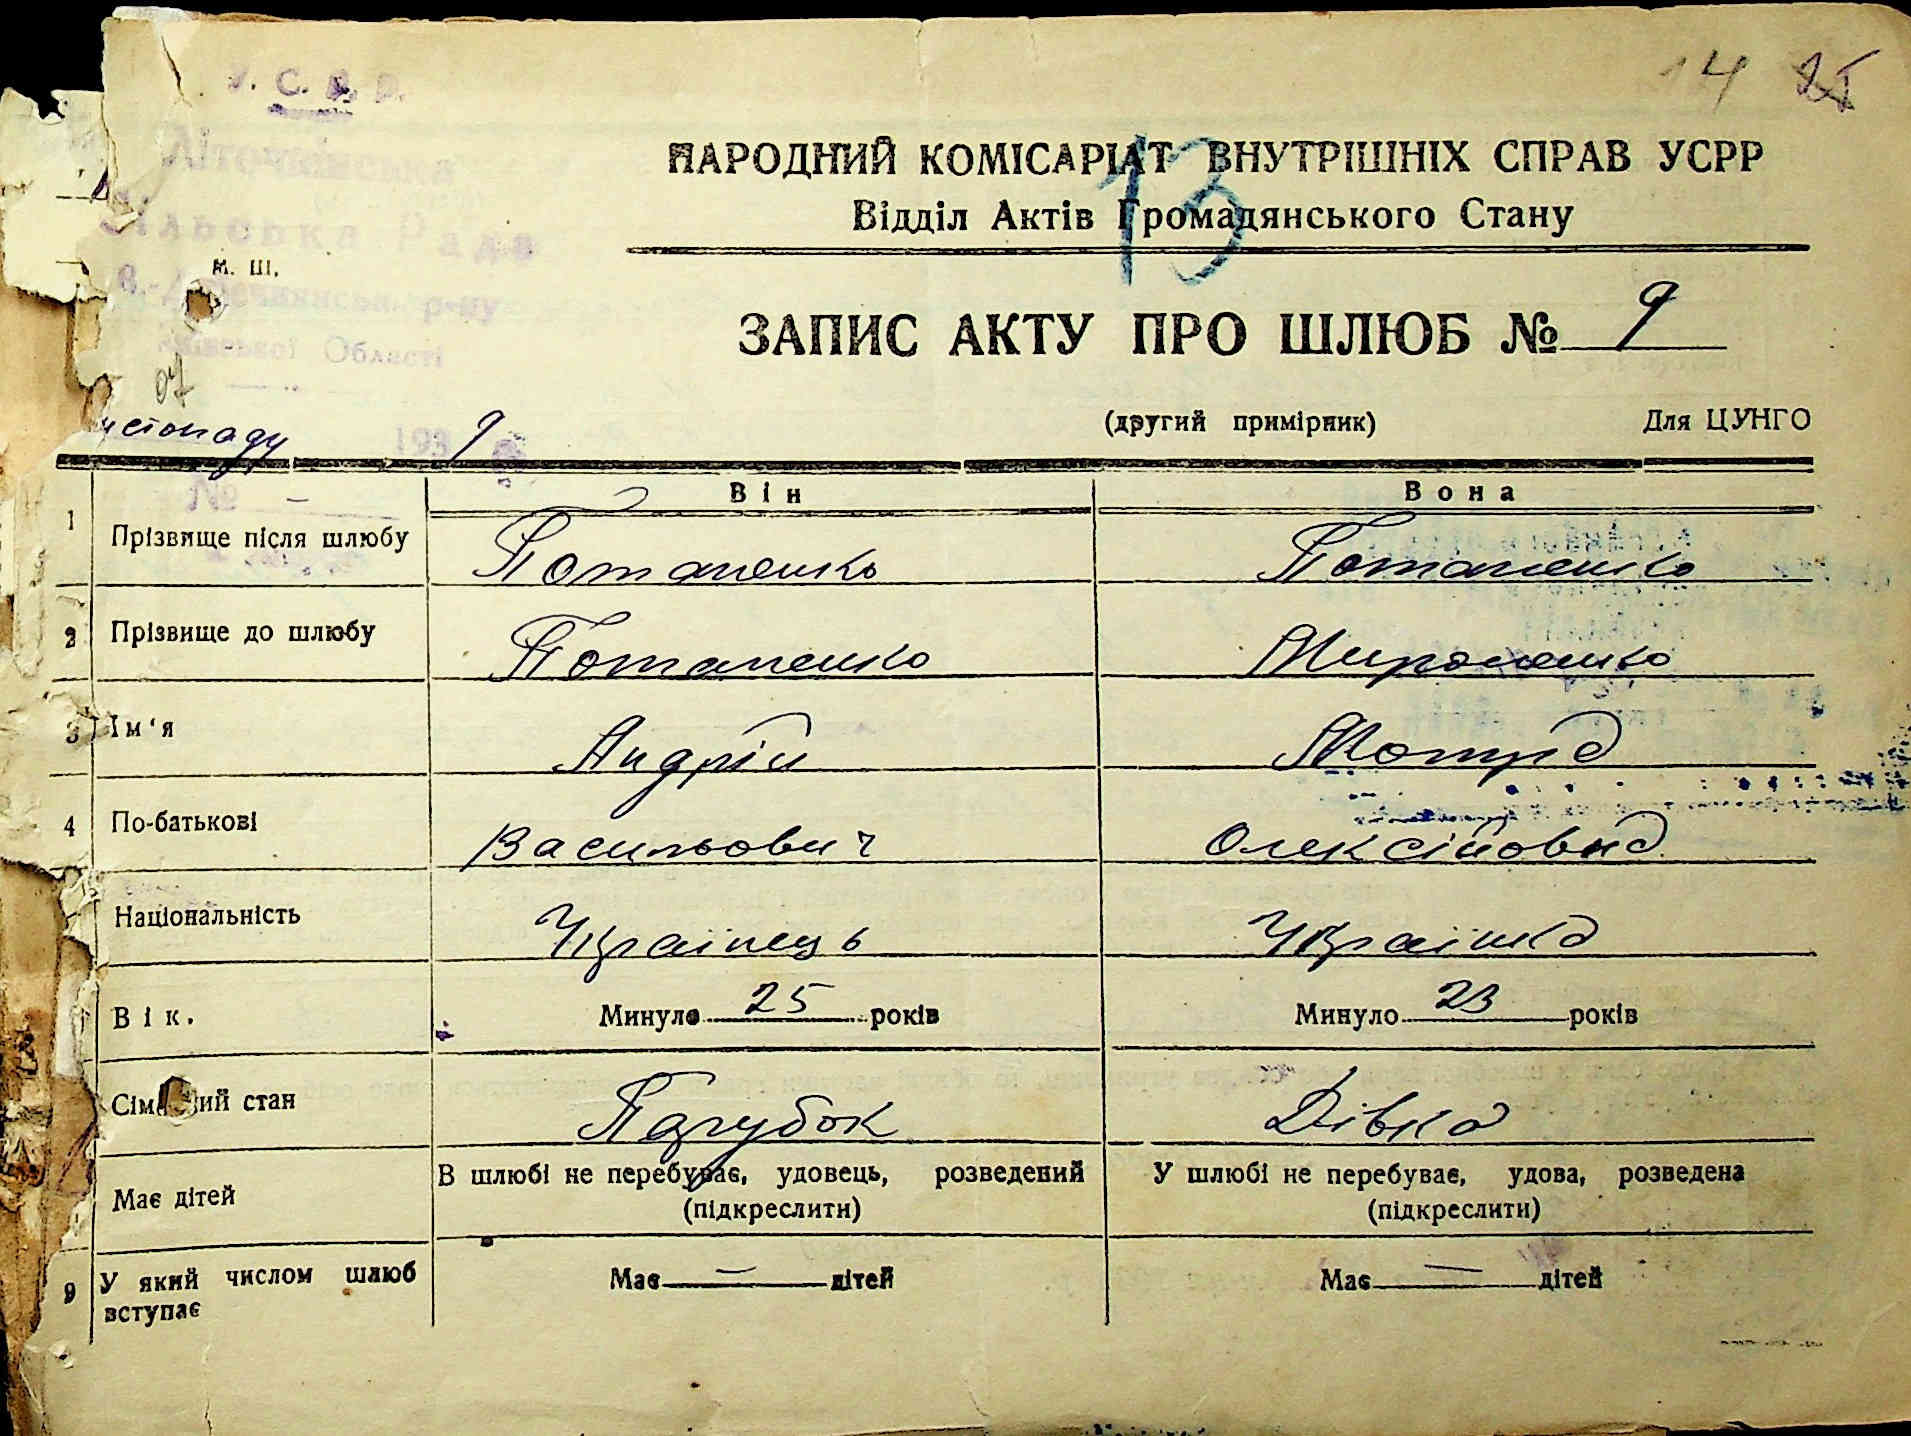 14
У. С. Р. Р.
НАРОДНИЙ КОМІСАРІАТ ВНУТРІШНІХ СПРАВ УСРР
13
Відділ Актів Громадянського Стану
Літочківська
Сільська Рада
М. Ш.
р-ну
Київської Області
ЗАПИС АКТУ ПРО ШЛЮБ № 9
07
истопаду 193 9
(другий примірник) Для ЦУНГО
№ —
Він Вона
1 Прізвище після шлюбу Потапенко Потапенко
2 Прізвище до шлюбу Потапенко Мироненко
3 Ім‘я Андрій Мотря
4 По-батькові Васильович Олексіївна
Національність Українець Українка
Вік. Минуло 25 років Минуло 23 років
Сім ий стан Парубок Дівка
Має дітей В шлюбі не перебуває, удовець, розведений У шлюбі не перебуває, удова, розведена
(підкреслити) (підкреслити)
9 У який числом шлюб вступає Має — дітей Має — дітей